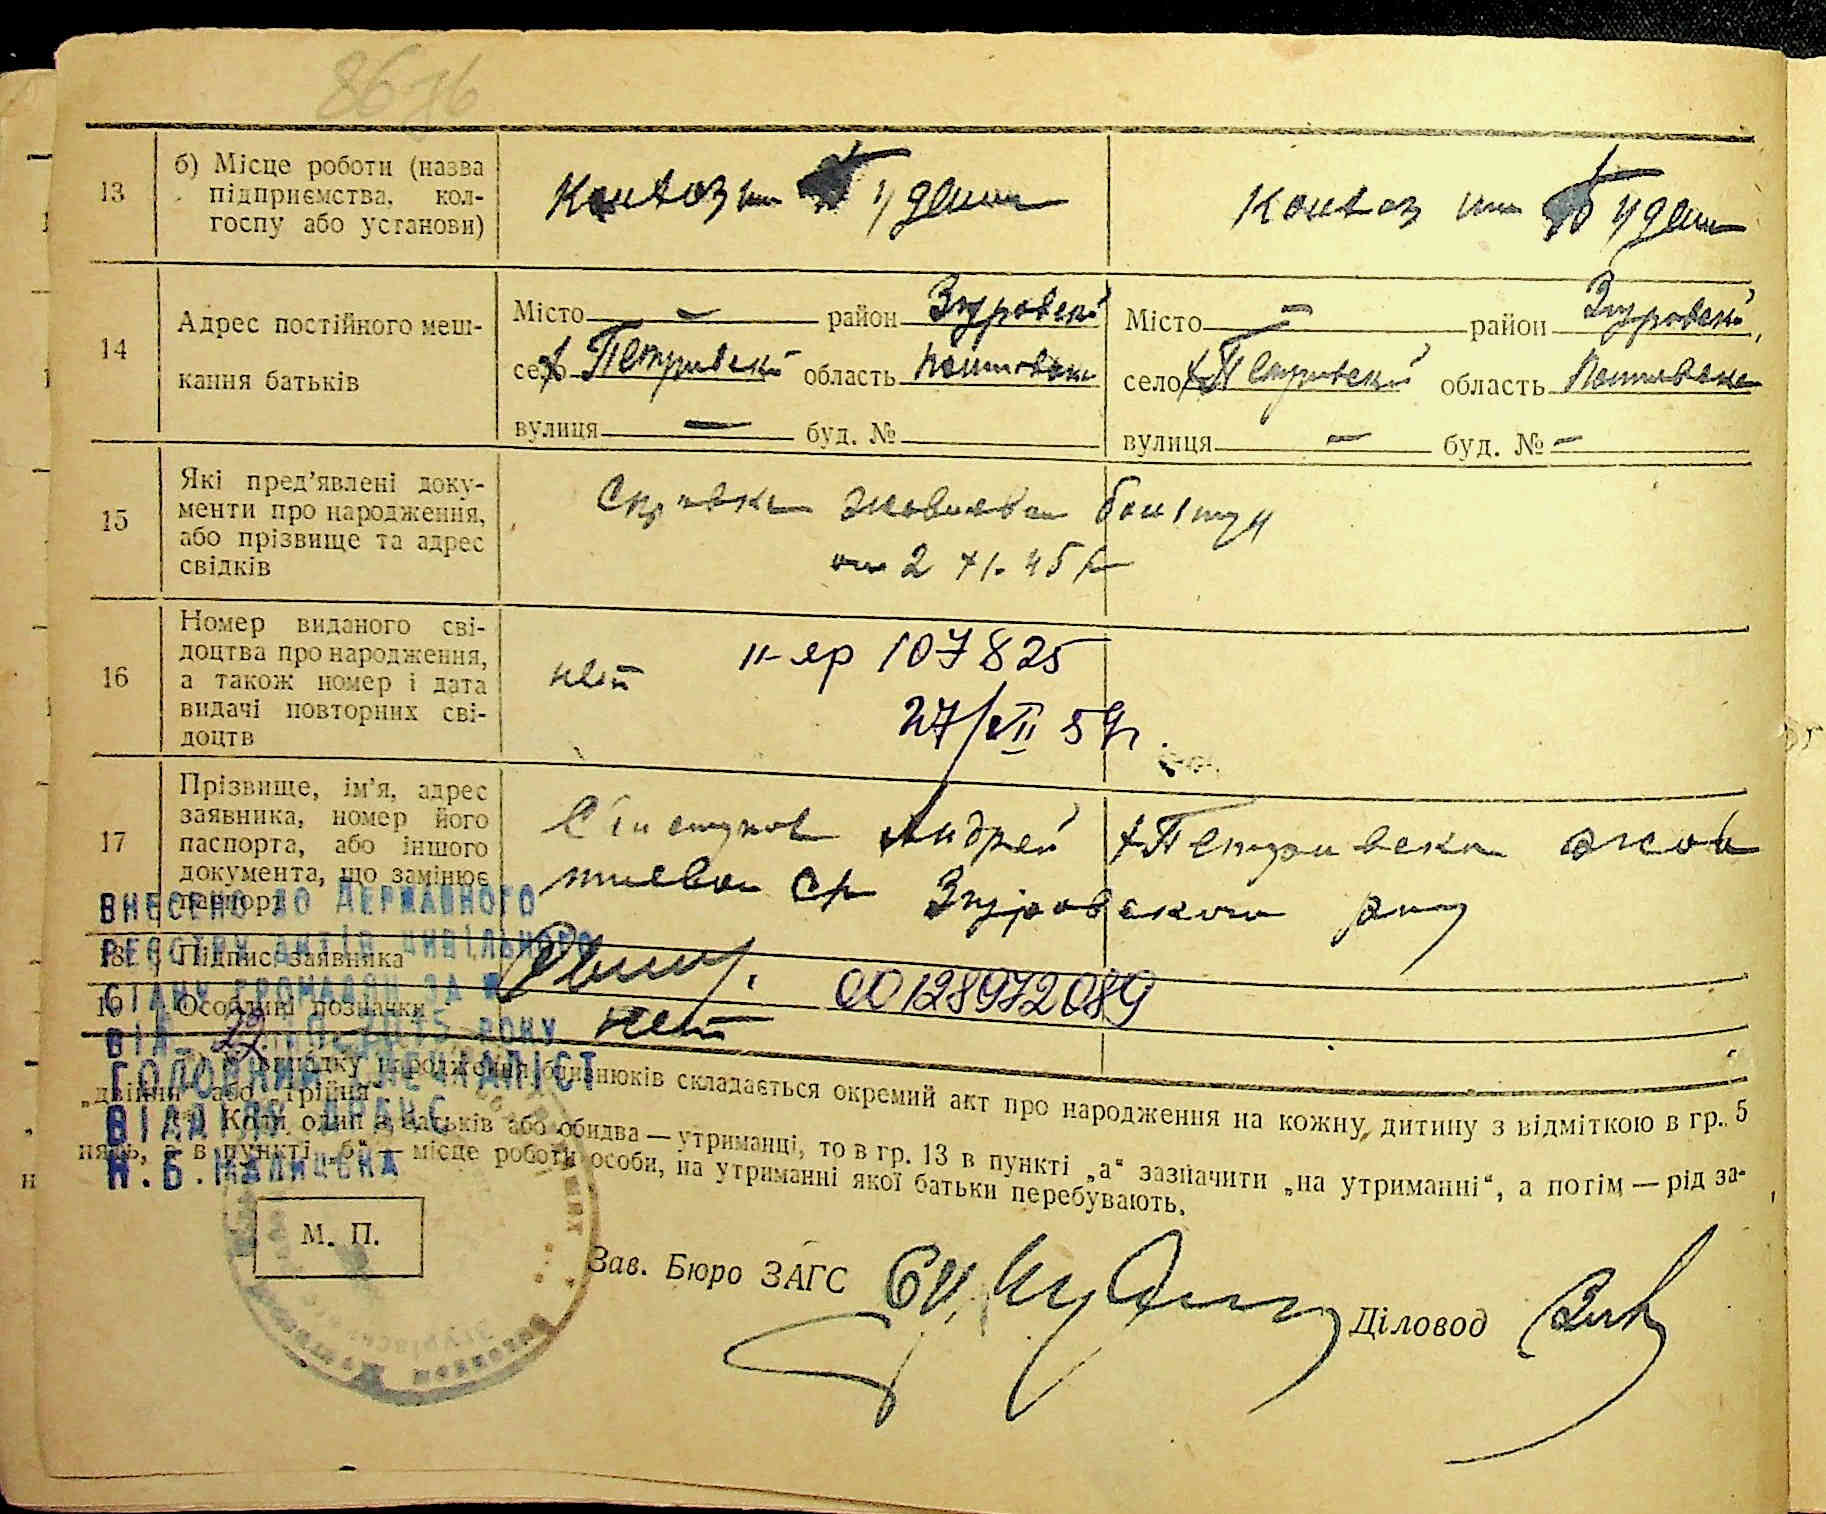 13
б) Місце роботи (назва
підприємства, кол-
госпу або установи)
Колхоз им Будени
Колхоз им Будени
14
Адрес постійного меш-
кання батьків
Місто — район Згуровский
село х Петривский область Полтавская
вулиця — буд. №
Місто — район Згуровский
село х Петривский область Полтавская
вулиця — буд. № —
15
Які пред'явлені доку-
менти про народження,
або прізвище та адрес
свідків
Справка
от 2 45 г
16
Номер виданого сві-
доцтва про народження,
а також номер і дата
видачі повторних сві-
доцтв
нет II-яр 107825
27/VII 59 г.
17
Прізвище, ім'я, адрес
заявника, номер його
паспорта, або іншого
документа, що замінює
паспорт
Андрей х Петривски
Ср Згуровского р-ну
18
Підпис заявника
19
Особливі позначки
нет
00128972089
ВНЕСЕНО ДО ДЕРЖАВНОГО
РЕЄСТРУ АКТІВ ЦИВІЛЬНОГО
СТАНУ ГРОМАДЯН ЗА №
ВІД 10.2015 РОКУ
ГОЛОВНИЙ СПЕЦІАЛІСТ
ВІДДІЛУ ДРАЦС
випадку народження близнюків складається окремий акт про народження на кожну дитину з відміткою в гр. 5
„двійня" або „трійня"
Коли один з батьків або обидва — утриманці, то в гр. 13 в пункті „а" зазначити „на утриманні", а потім — рід за-
нять, а в пункті „б" — місце роботи особи, на утриманні якої батьки перебувають.
М. П.
Зав. Бюро ЗАГС
Діловод